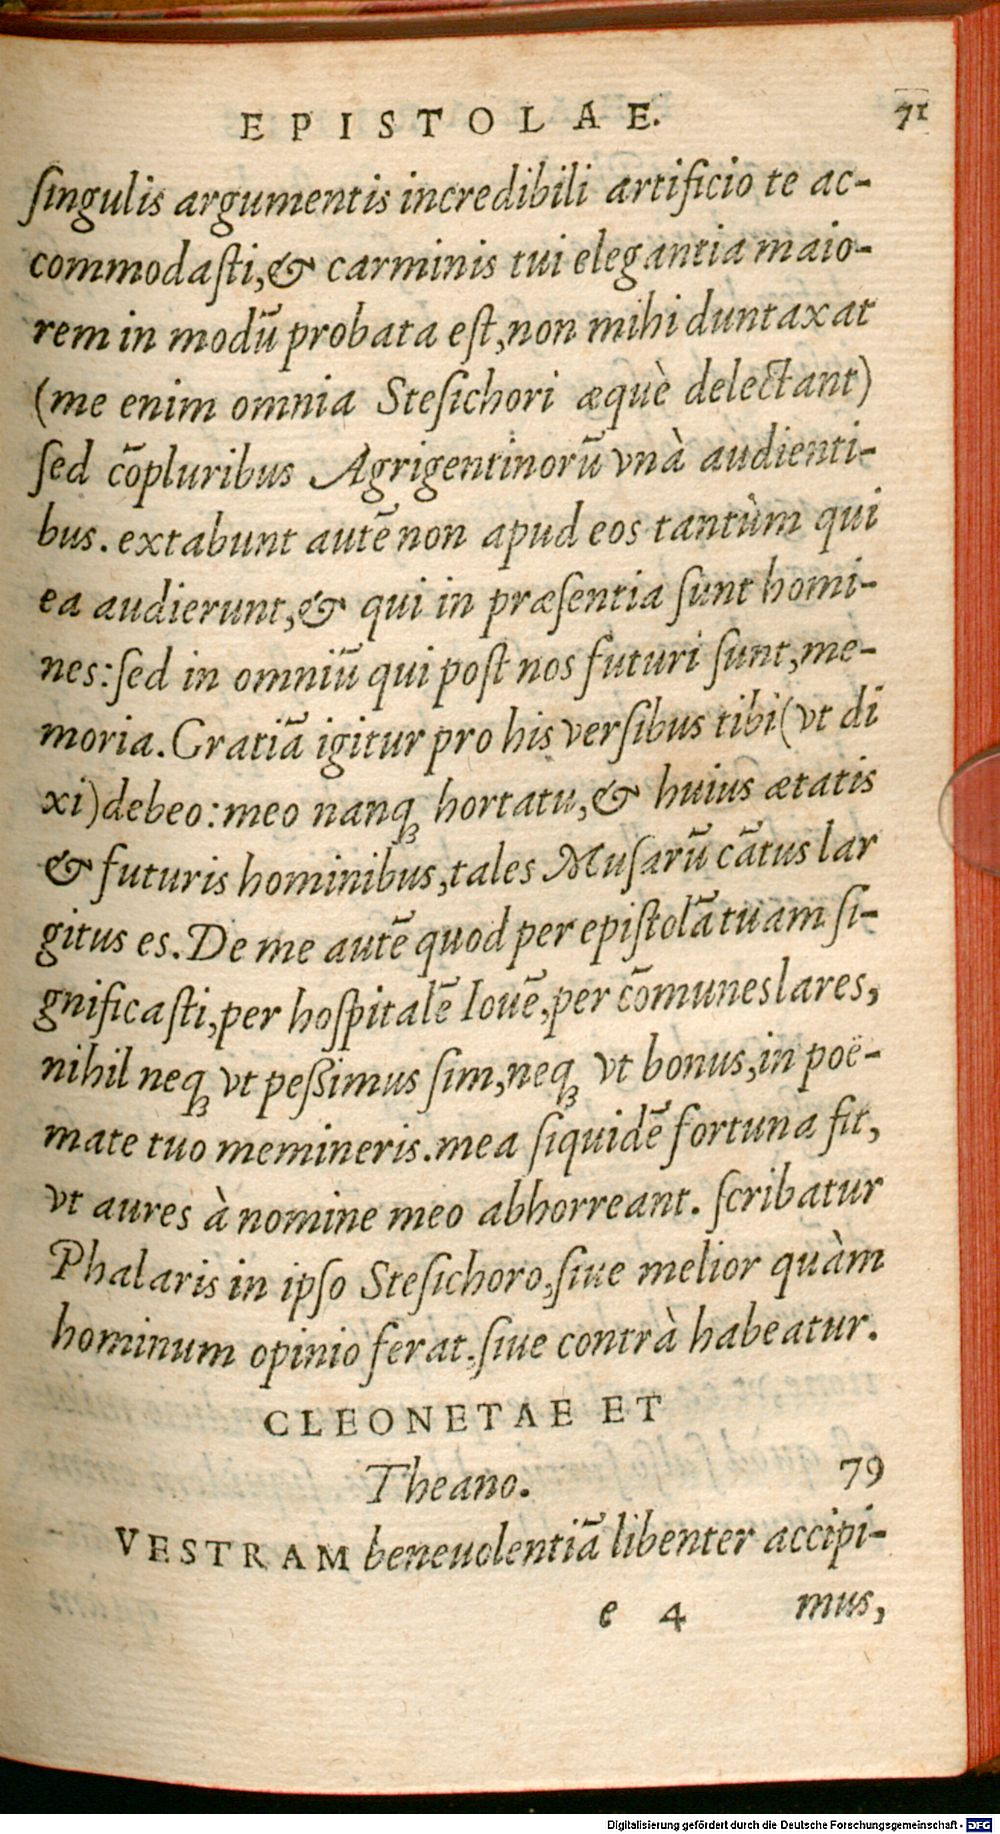 EPISTOLAE. 71
ſingulis argumentis incredibili artificio te ac-
commodaſti,& carminis tui elegantia maio-
rem in modū probata eſt,non mihi duntaxat
(me enim omnia Steſichori æquè delectant)
ſed cōpluribus Agrigentinorū vnà audienti-
bus. extabunt autē non apud eos tantùm qui
ea audierunt,& qui in præſentia ſunt homi-
nes:ſed in omniū qui poſt nos futuri ſunt,me-
moria. Gratiā igitur pro his verſibus tibi(vt di
xi)debeo:meo nanq; hortatu,& huius ætatis
& futuris hominibus,tales Muſarū cātus lar
gitus es. De me autē quod per epiſtolā tuam ſi-
gnificaſti,per hoſpitalē Iouē,per cōmunes lares,
nihil neq; vt peßimus ſim,neq; vt bonus,in poë-
mate tuo memineris.mea ſiquidē fortuna fit,
vt aures à nomine meo abhorreant. ſcribatur
Phalaris in ipſo Steſichoro,ſiue melior quàm
hominum opinio ferat,ſiue contrà habeatur.
CLEONETAE ET
Theano. 79
VESTRAM beneuolentiā libenter accipi-
e 4 mus,
Digitalisierung gefördert durch die Deutsche Forschungsgemeinschaft - DFG